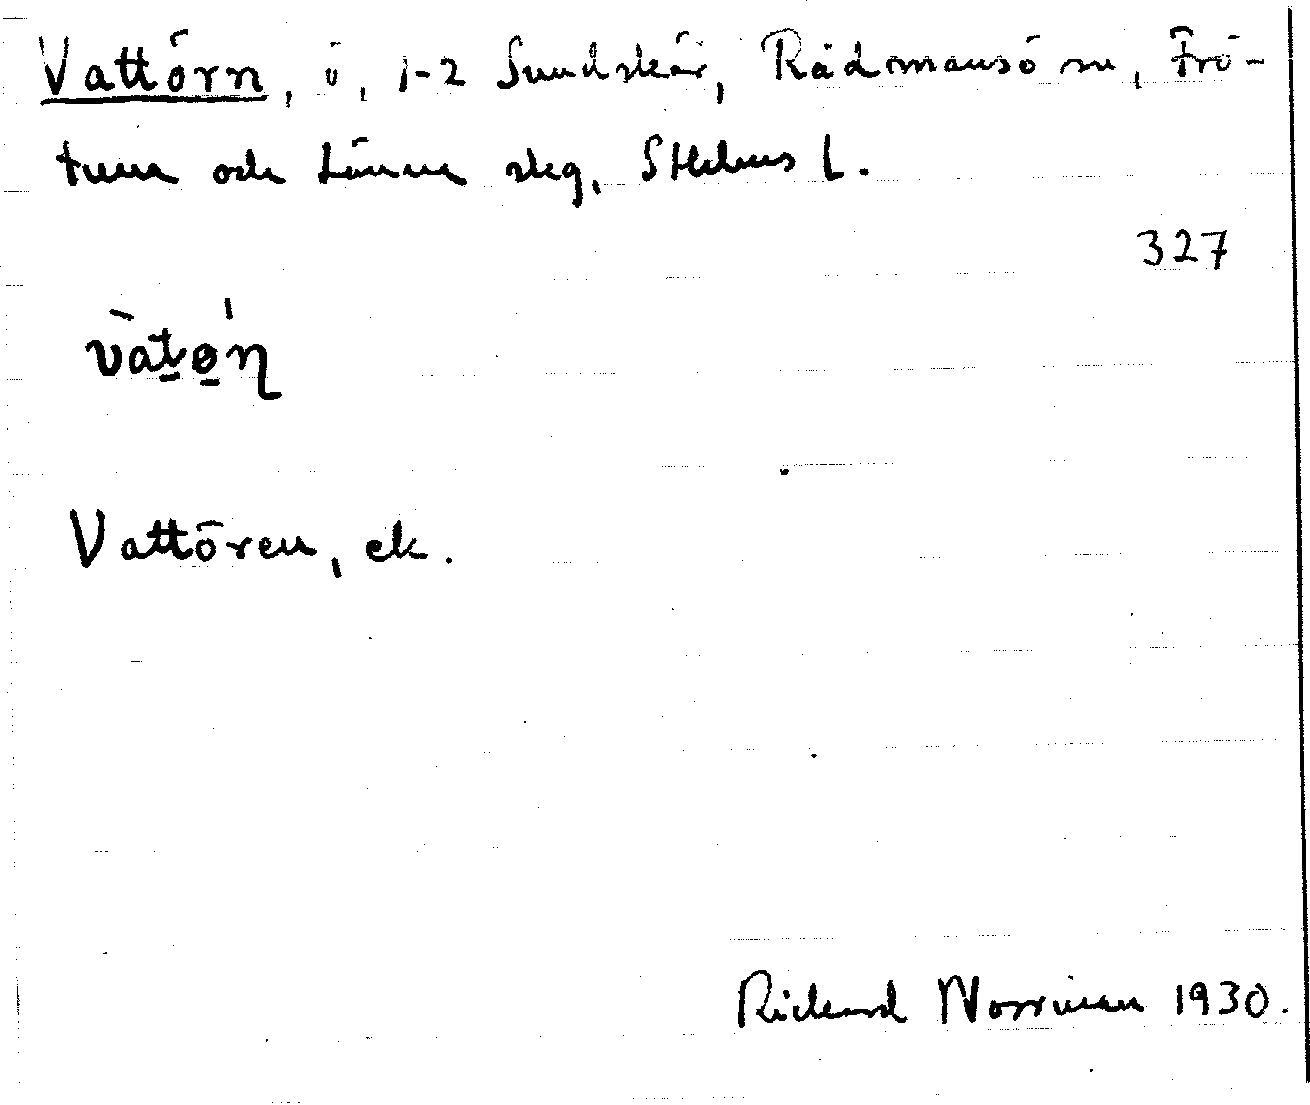 Vattörn, ö, 1-2 Sundskär, Rådmansö sn, Frö-
tuna och Länna skg, Sthlms l.
327
vàtǿ̱n
Vattören, ek.
Rickard Norrman 1930.